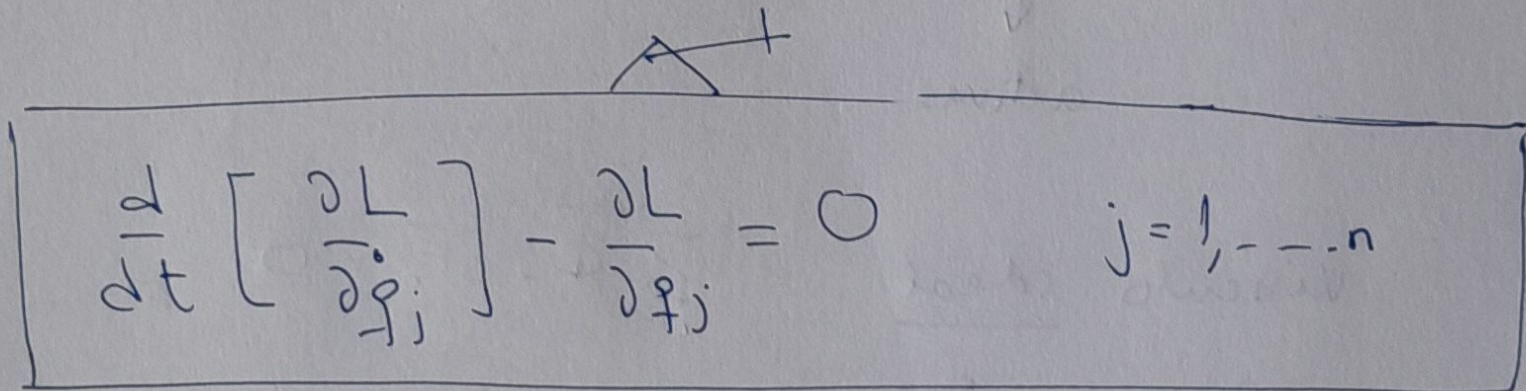 d/dt [ ∂L/∂q̇_j ] - ∂L/∂q_j = 0 j = 1, - - - . n